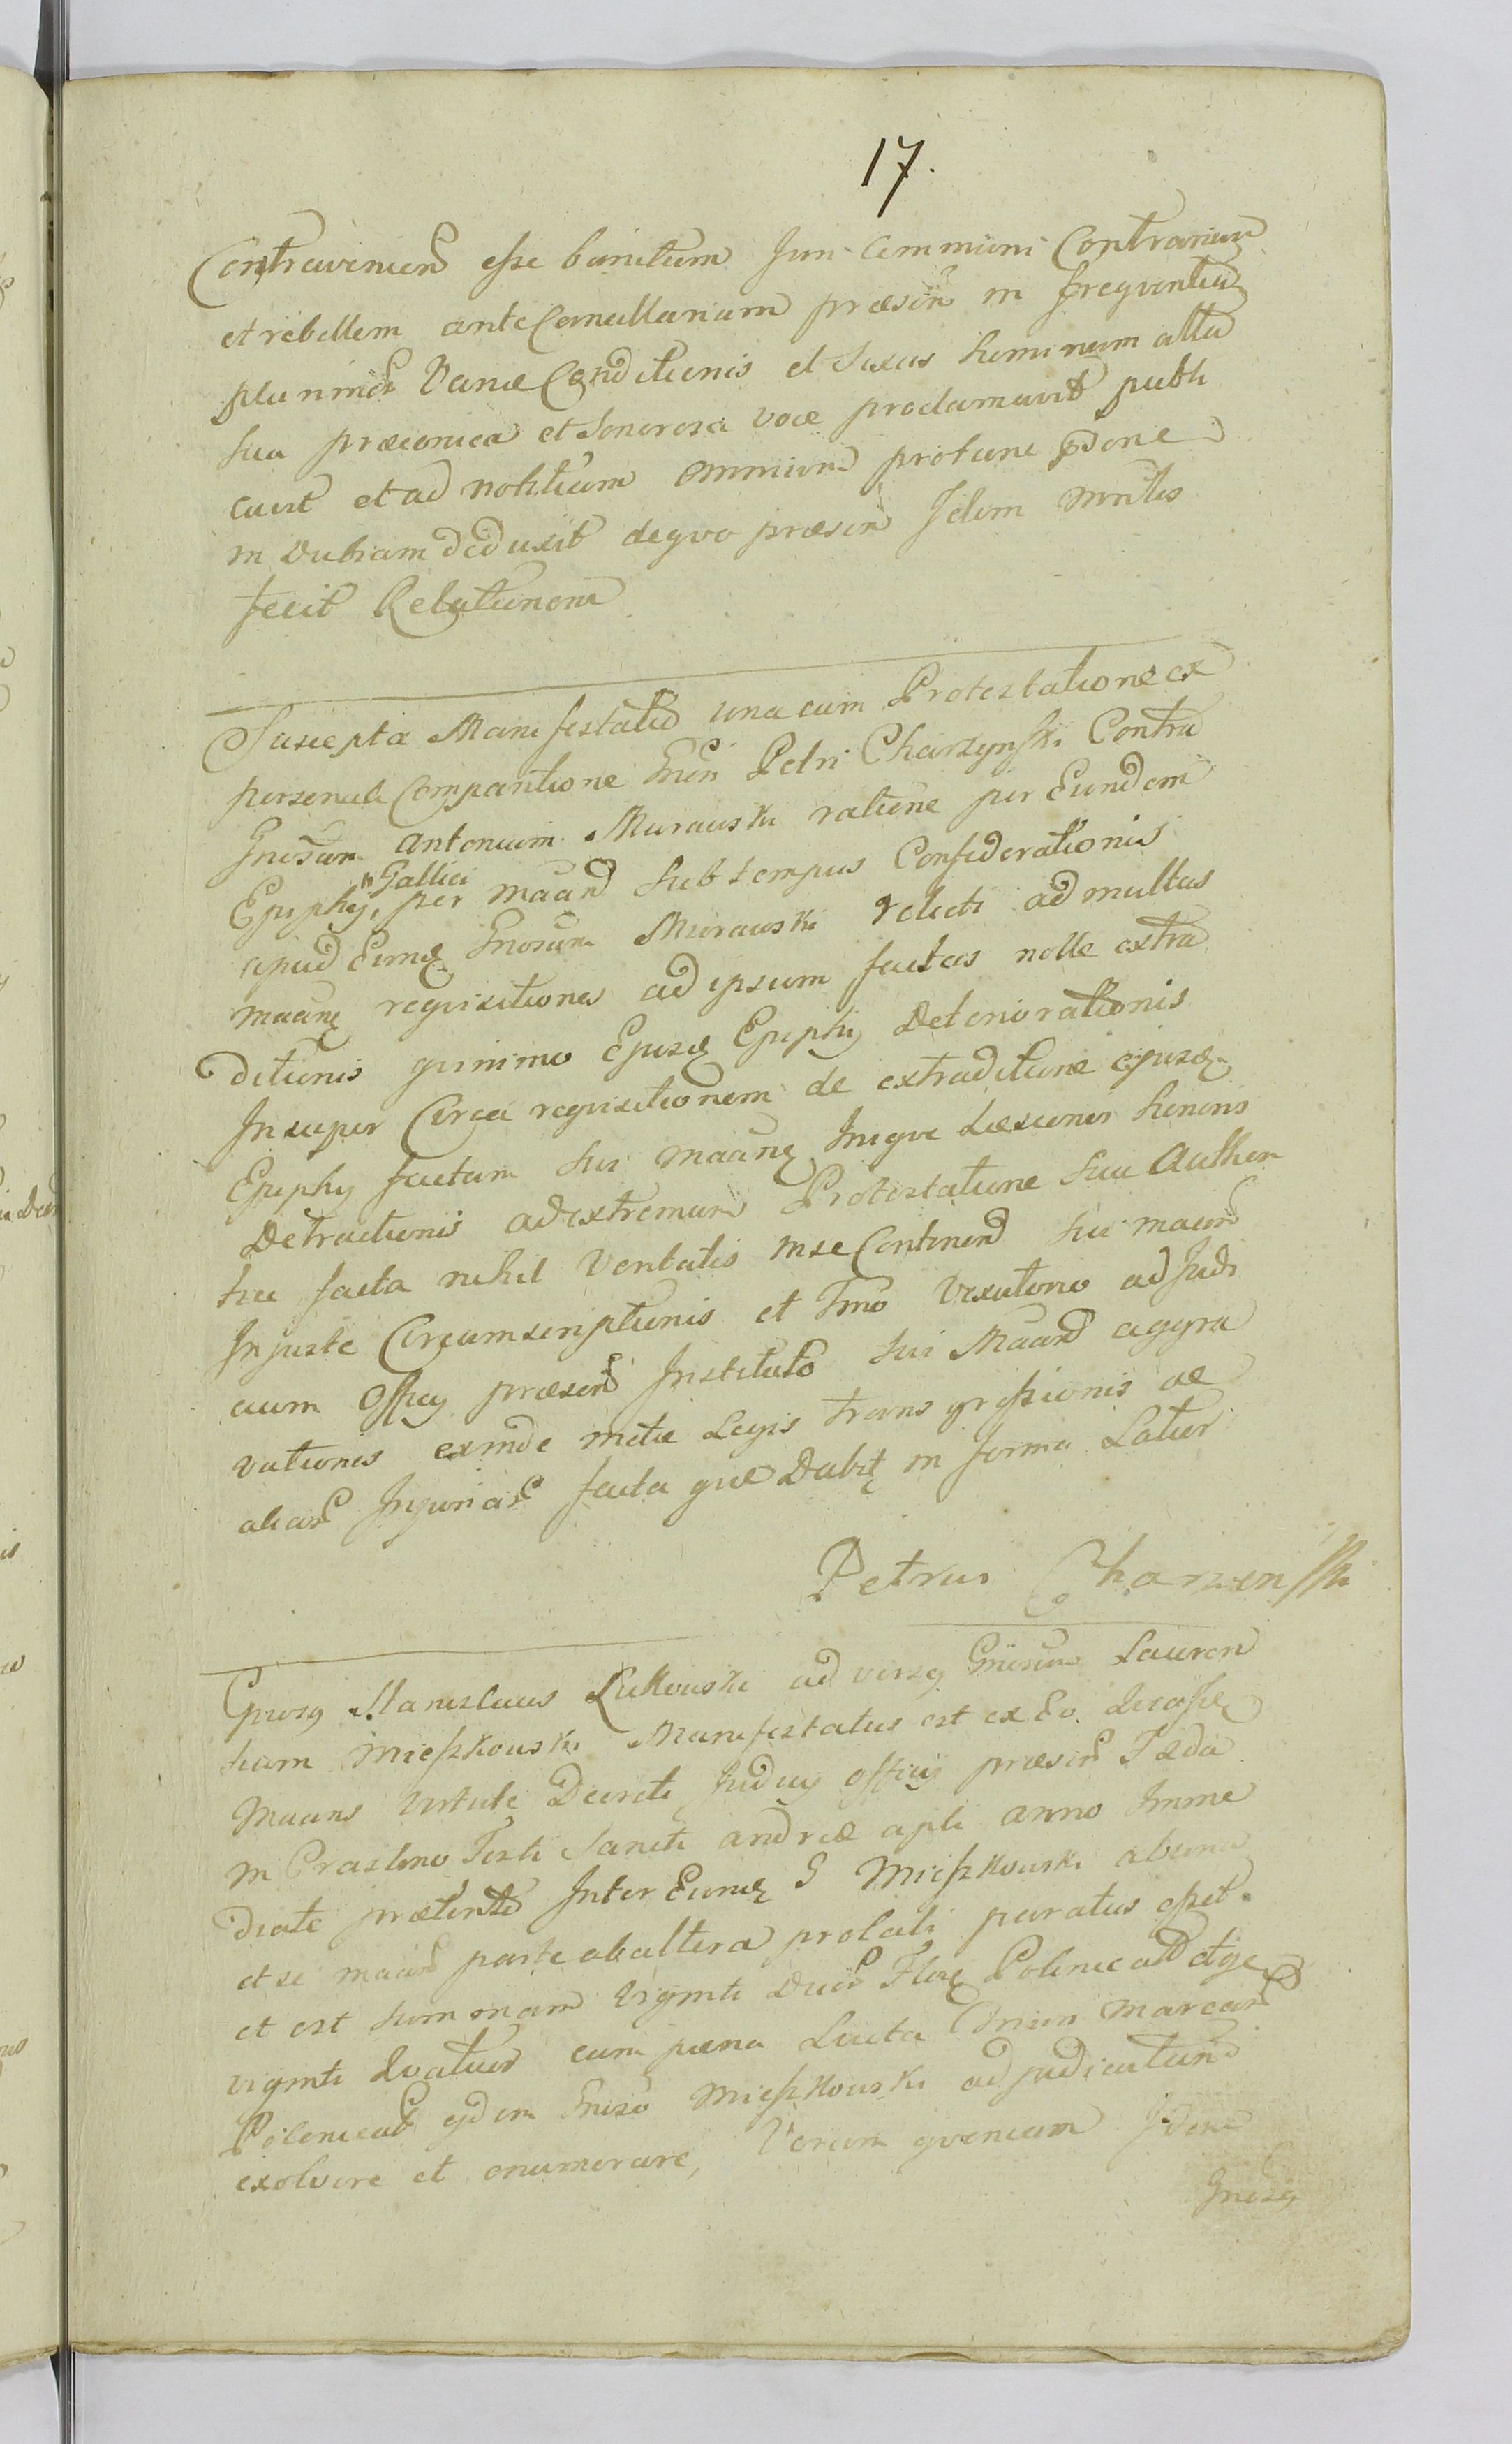 17.
Contravenien esse banitum Juri Communi Contrarium
et rebellem ante Cancellariam præsen in frequentia
plurimor Variæ Conditionis et sexus hominum alta
sua præconica et sonorosa voce proclamavit publi
cavit et ad notitiam omnium protunc
in dubiam deduxit dequo præsen Idem Mnrlis
fecit Relationem
Suscepta Manifestatio una cum Protestatione ex
personali Comparitione Gnsi Petri Charzynski Contra
Gnosum Antonium Murawski ratione per Eundem
Gallici
Ephyphij, per maand sub tempus Confiderationis
apud Eumq Gnosum Murawski relicti ad multas
maang requisitiones ad ipsum factas nolle extra
ditionis quinimo Ejusq Epiphij Deteriorationis
Insuper Circa requisitionem de extraditione ejusq
Epiphij factam sui maang Inique Læsionis honoris
Detractionis ad extremum Protestatione sua Authen
hic facta nihil Veritatis in se Continen sui maand
Injuste Circumscriptionis et Tmo Vexatorio ad Judi
cium Officij præsen Instituto sui Maand aggra
vationis exinde mitæ Legis transgressionis ac
aliar Injuriar facta quæ Dabit in forma Latior
Petrus Charzenski
Gnosq Stanislaus Lukowski adversq Gnosum Lauren
tium Mieszkowski Manifestatus est ex Eo
Maans Virtute Decreti Judicij officij præsen
in Crastino Festi Sancti Andreæ apli anno Imme
diate præterito Inter Eumq G Mieszkowski ab una
et se maand parte ab altera prolati paratus esset
et est summam Viginti Duor Flor Polonical
viginti Quatuor cum pæna Lucta trium marcar
Polonical ejdem Gnoso Mieszkowski adjudicatam
exolvere et enumerare, Verum quoniam Idem
Gnosq